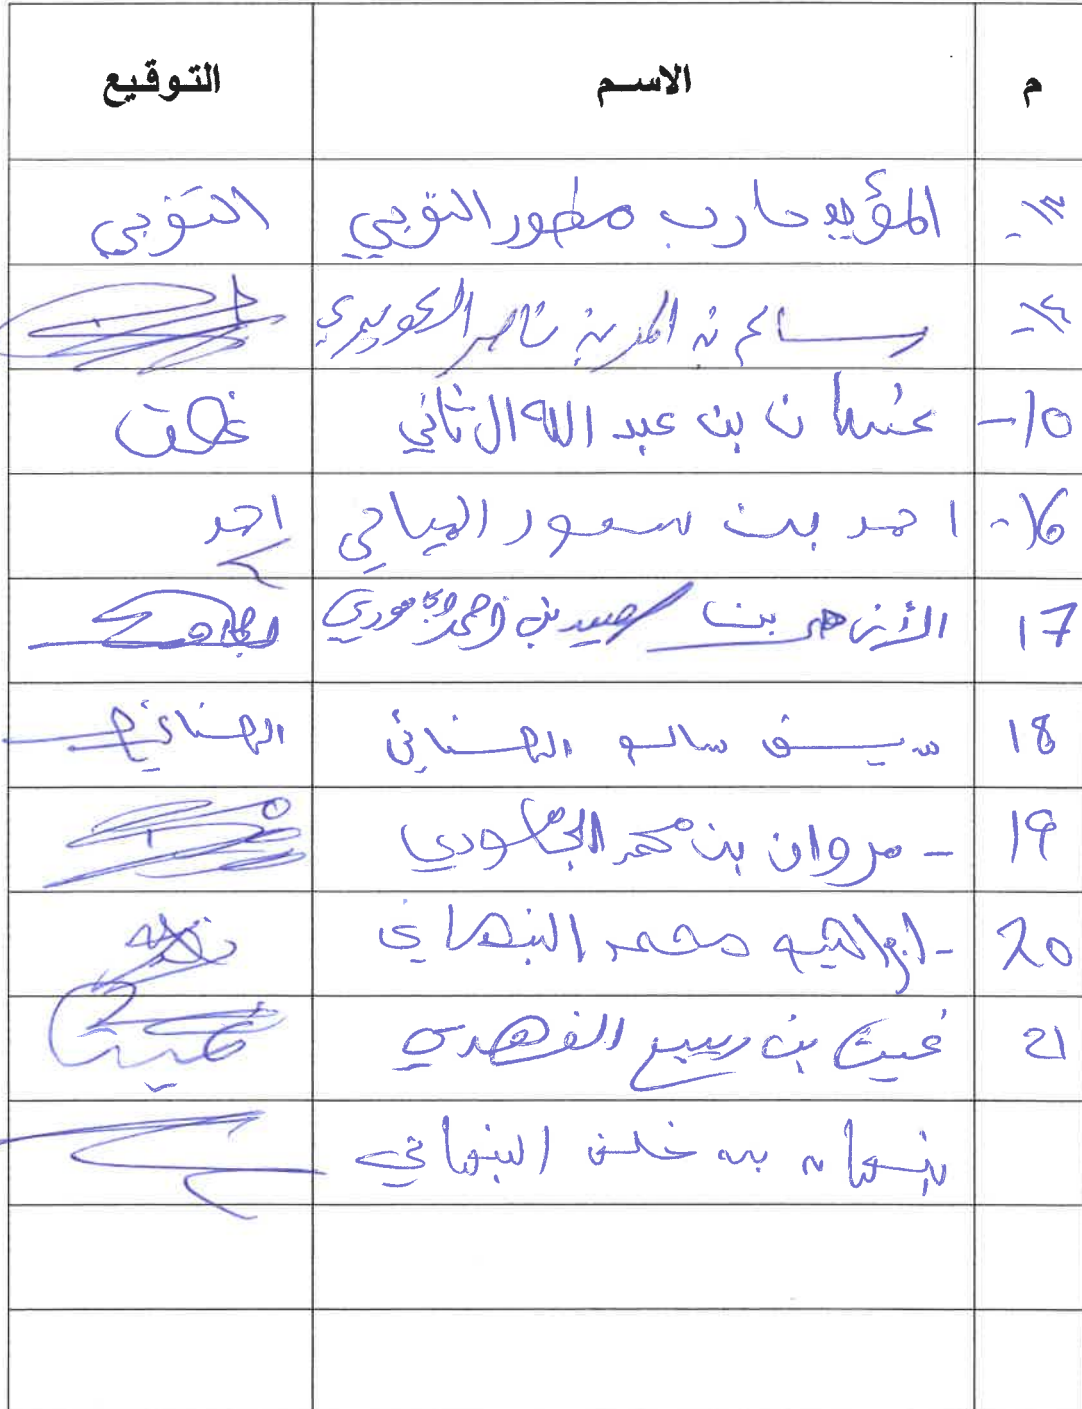 م الاسم التوقيع
١٣- المؤيد حارب مطور التوبي التوبي
١٤- سالم بن احمد بن ناصر
١٥- عثمان بن عبد الله ال ثاني
16- احمد بن سعود المياحي احمد
17 الأزهر بن سعيد بن احمد
18 سيف سالم الهنائي الهنائي
19 - مروان بن محمد
20 - ابراهيم محمد النبهاني
21 غيث بن ربيع الفهدي غيث
نبهان بن خلف النبهاني